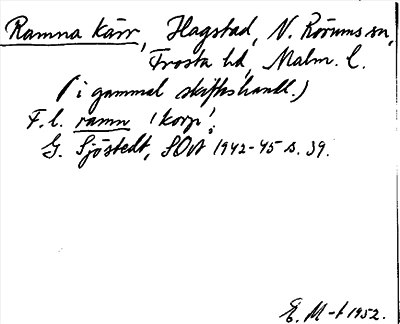 Ramna Kärr, Hagstad, N. Rörums sn,
Frosta hd, Malm. l.
(i gammal skifteshandl.)
F. l. ramn 'korp'.
G. Sjöstedt, SOÅ 1942-45 s. 39.
E. M-t 1952.